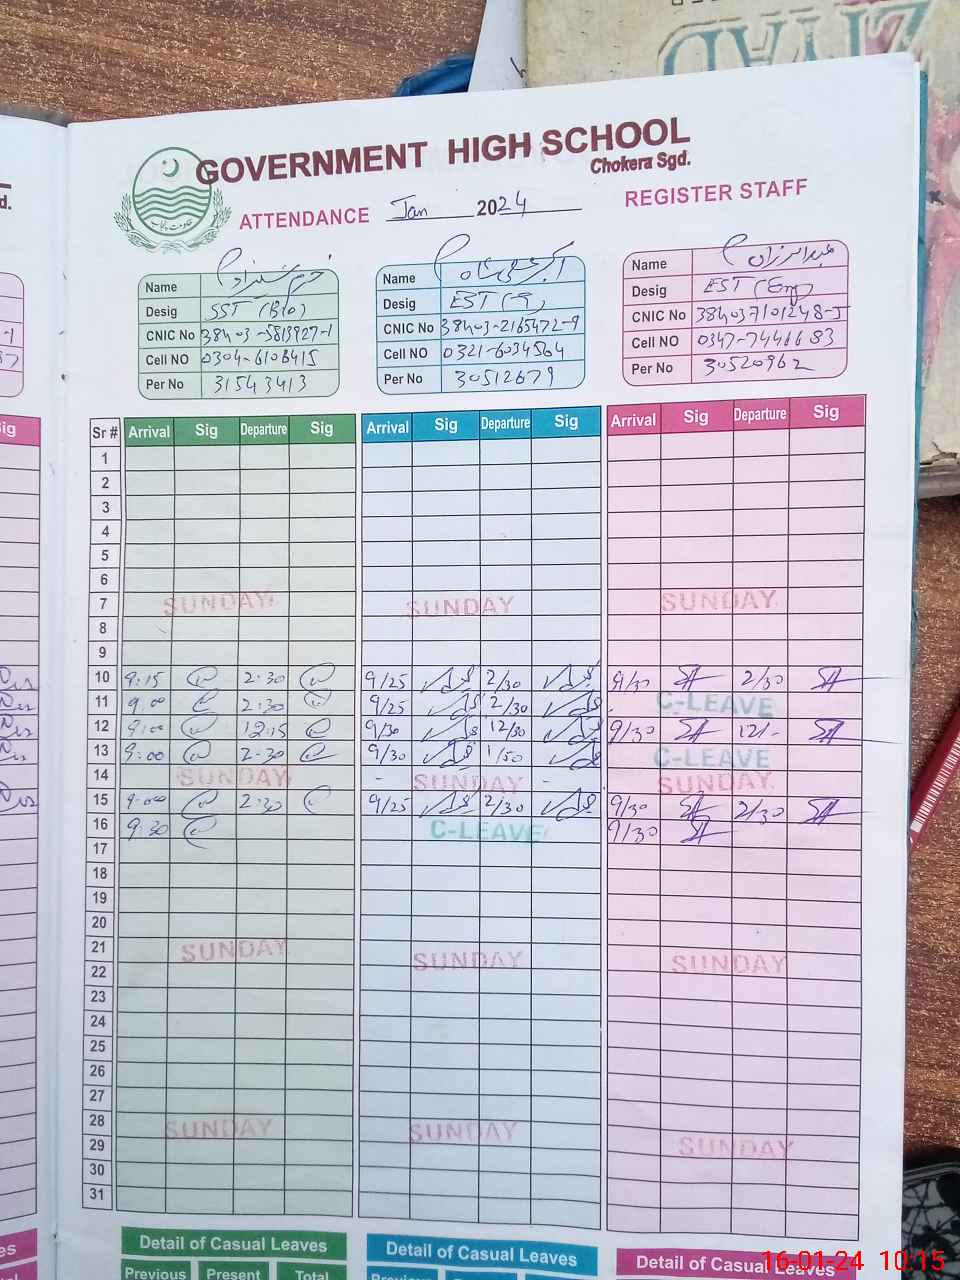 GOVERNMENT HIGH SCHOOL
Chokera Sgd.
ATTENDANCE Jan 2024 REGISTER STAFF
Name
Desig SST (Bio)
CNIC No 38403-5813927-1
Cell NO 0304-6106415
Per No 31543413
Name
Desig EST
CNIC No 38403-2165472-9
Cell NO 0321-6034564
Per No 30512679
Name
Desig EST (Eng)
CNIC No 384037101248-5
Cell NO 0347-7446683
Per No 30520962
Sr # Arrival Sig Departure Sig Arrival Sig Departure Sig Arrival Sig Departure Sig
1
2
3
4
5
6
7 SUNDAY SUNDAY SUNDAY
8
9
10 9:15 2:30 9/25 2/30 9/30 2/30
11 9:00 2:30 9/25 2/30 C-LEAVE
12 9:00 12:15 9/30 12/30 9/30 12/-
13 9:00 2-30 9/30 1/50 C-LEAVE
14 SUNDAY - SUNDAY - SUNDAY
15 9:00 2:30 9/25 2/30 9/30 2/30
16 9:30 C-LEAVE 9/30
17
18
19
20
21 SUNDAY SUNDAY SUNDAY
22
23
24
25
26
27
28 SUNDAY SUNDAY SUNDAY
29
30
31
Detail of Casual Leaves Detail of Casual Leaves Detail of Casual Leaves
Previous Present Total
16-01-24 10:15